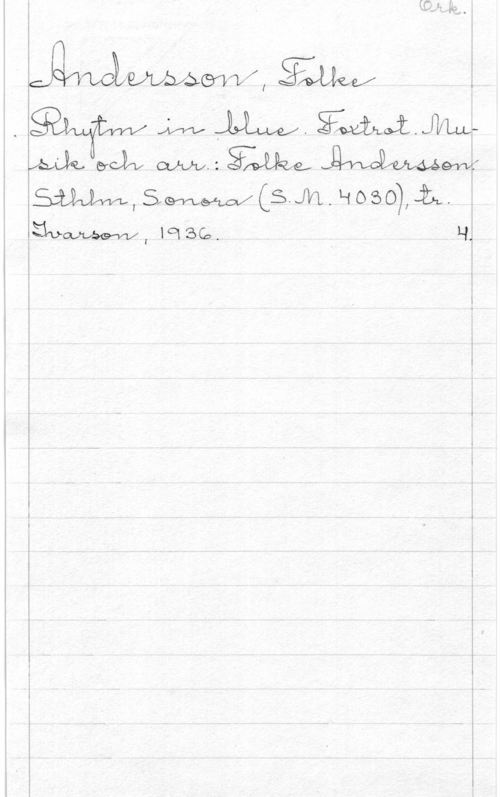 Ork.
Andersson, Folke
Rhytm in blue. Foxtrot. Mu-
sik och arr.: Folke Andersson.
Sthlm, Sonora (S.M. 4030), tr.
Ivarson, 1936. 4.